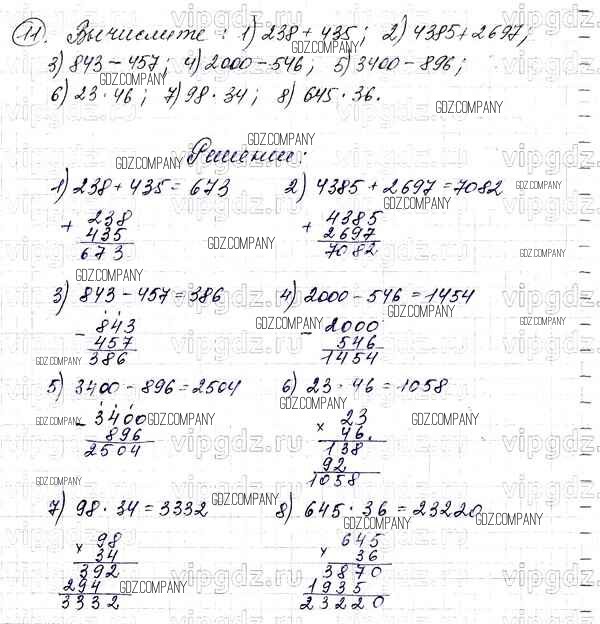 11. Вычислите: 1) 238 + 435; 2) 4385 + 2697;
3) 843 - 457; 4) 2000 - 546; 5) 3400 - 896;
6) 23 · 46; 7) 98 · 34; 8) 645 · 36.
Решение:
1) 238 + 435 = 673
+ 238
435
673
2) 4385 + 2697 = 7082
+ 4385
2697
7082
3) 843 - 457 = 386
- 843
457
386
4) 2000 - 546 = 1454
- 2000
546
1454
5) 3400 - 896 = 2504
- 3400
896
2504
6) 23 · 46 = 1058
× 23
46
138
92
1058
7) 98 · 34 = 3332
× 98
34
392
294
3332
8) 645 · 36 = 23220
× 645
36
3870
1935
23220
GDZ.COMPANY
vipgdz.ru